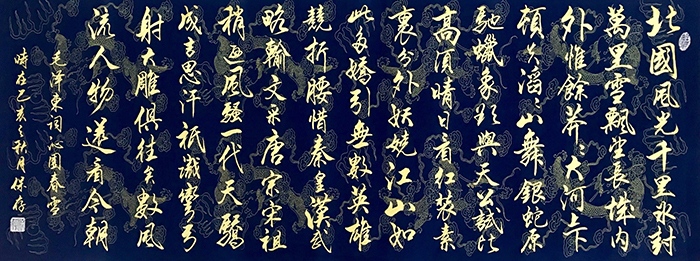 北國風光千里冰封
萬里雪飄望長城內
外惟餘莽々大河上下
頓失滔々山舞銀蛇原
馳蠟象欲與天公試比
高須晴日看紅裝素
裹分外妖嬈江山如
此多嬌引無數英雄
競折腰惜秦皇漢武
略輸文采唐宗宋祖
稍遜風騷一代天驕
成吉思汗祇識彎弓
射大雕俱往矣數風
流人物還看今朝
毛澤東詞沁園春雪
時在乙亥之秋月保存